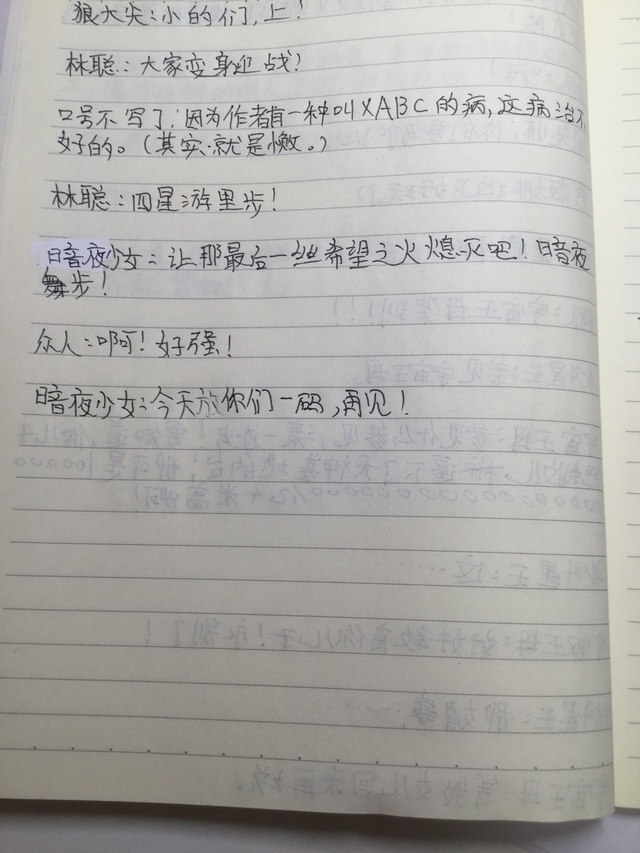 狼大尖：小的们，上！
林聪：大家变身迎战！
口号不写了，因为作者有一种叫XABC的病，这病治不
好的。（其实就是懒。）
林聪：四星游里步！
暗夜少女：让那最后一丝希望之火熄灭吧！暗夜
舞步！
众人：啊！好强！
暗夜少女：今天放你们一码，再见！